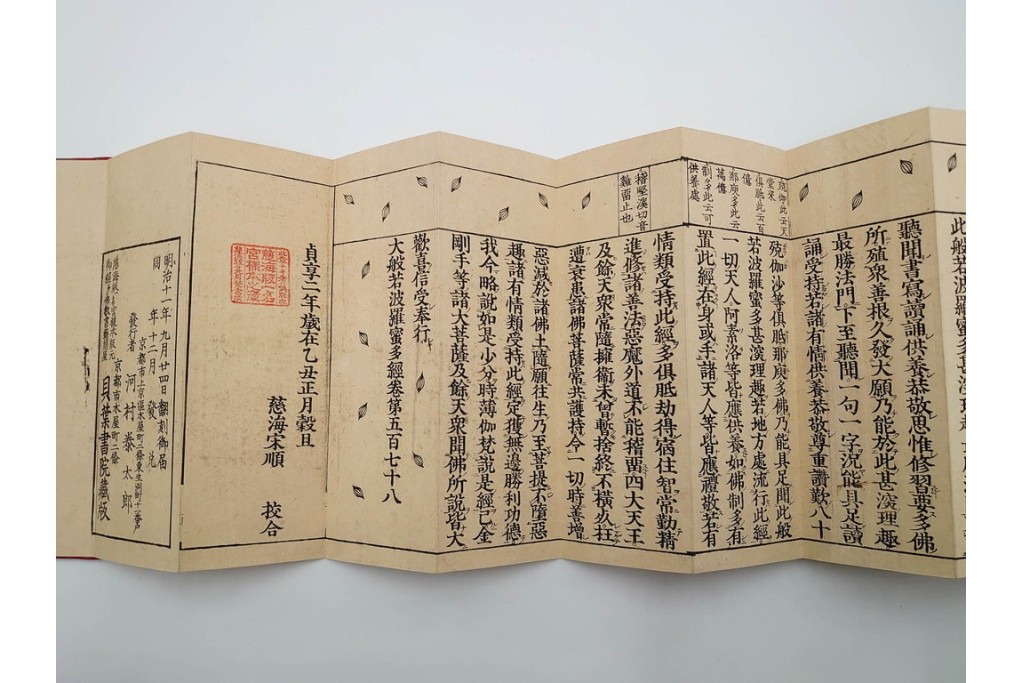 聽聞書寫讀誦供養恭敬思惟修習要多佛
所殖衆善根久發大願乃能於此甚㴱理趣
最勝法門下至聽聞一句一字況能具足讀
誦受持若諸有情供養恭敬尊重讚歎八十
殑伽沙等俱胝那庾多佛乃能具足聞此般
若波羅蜜多甚㴱理趣若地方處流行此經
一切天人阿素洛等皆應供養如佛制多有
置此經在身或手諸天人等皆應禮敬若有
殑伽此云天
堂來
俱胝此云百
億
那庾多此云
萬億
制多此云可
供養處
情類受持此經多俱胝劫得宿住智常勤精
進修諸善法惡魔外道不能稽畱四大天王
及餘天衆常隨擁衞未曾暫捨終不橫死枉
遭衰患諸佛菩薩常共護持令一切時善增
惡減於諸佛土隨願往生乃至菩提不墮惡
趣諸有情類受持此經定獲無邊勝利功德
我今略說如是少分時薄伽梵說是經已金
剛手等諸大菩薩及餘天衆聞佛所說皆大
稽堅溪切音
雞畱止也
歡喜信受奉行
大般若波羅蜜多經卷第五百七十八
貞享二年歲在乙丑正月穀旦
慈海宋順 挍合
明治十一年九月廿四日翻刻御届
同 年十二月 發兌
發行者 河村泰太郎
京都市木屋町二條
貝葉書院藏版